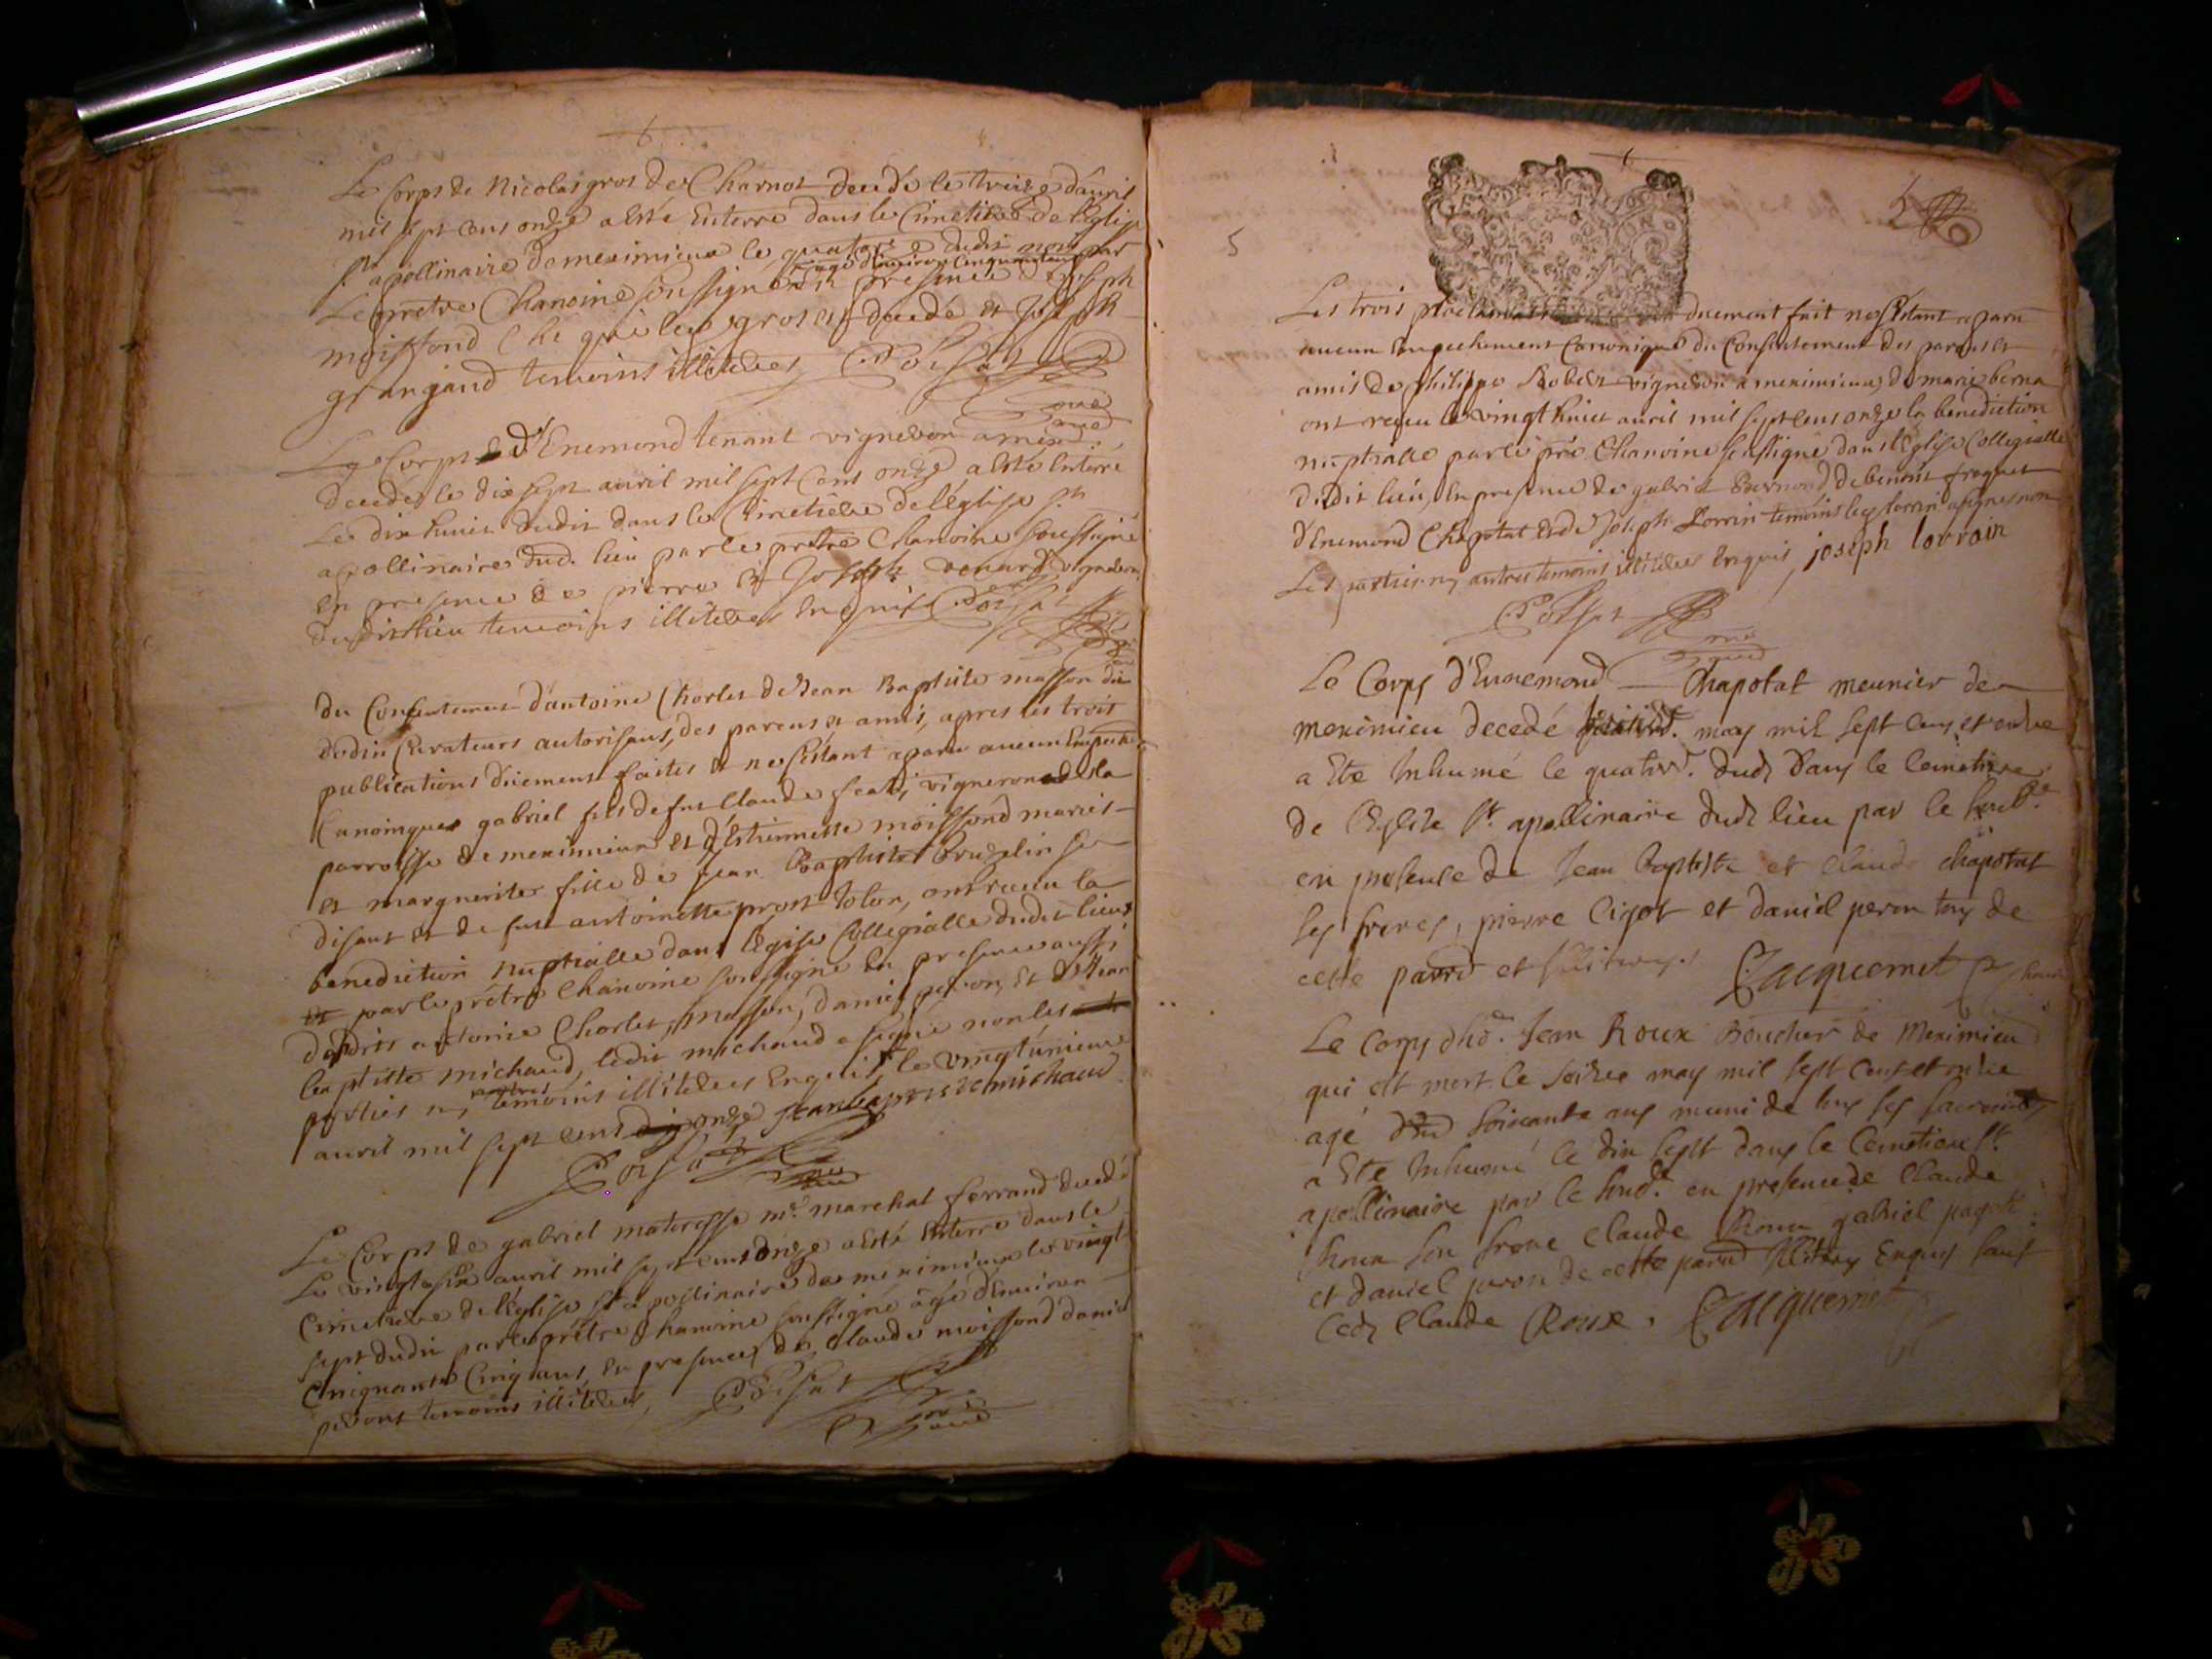 Le Corps de Nicolas gros de Charnos decedé le treize d'auril
mil sept cens onze a esté Enterré dans le Cimetiere de l'Eglise
St apollinaire de meximieux le quatorze dudit mois par
agé d'environ cinquante ans
Le prêtre Chanoine soussigné En presence de Joseph
moissond Ch gros decedé et Joseph
grangand temoins illiteres Poisat
Le Corps d'Enemond tenant vigneron a mex.
decedé le dix sept auril mil sept cens onze a esté Enterré
Le dix huict dudit dans le Cimetiere de l'église St
apollinaire dud. lieu par le prêtre Chanoine soussigné
En presence de pierre et Joseph vigneron
dudit lieu temoins illiteres Enquis Poisat
du Consentement d'antoine Chorlet de Jean Baptiste masson du
Curateurs autorisans, des parens et amis, apres les trois
publications düement faites et ne s'estant aparu aucun Empeche
Canonique gabriel fils de feu Claude vigneron de la
parroisse de meximieux et d'Estiennette moissond mariés
et marguerite fille de Jean Baptiste
disant et de feue antoinette prost tolon, ont receu la
benediction nuptialle dans l'église Collegialle dudit lieux
par le prêtre Chanoine soussigné En presence aussi
desdits antoine Chorlet, masson, daniel peron, Et de Jean
baptiste michaud, ledit michaud a signé non les
parties ny autres temoins illiteres Enquis, le vingtunieme
auril mil sept cens onze jeanbaptiste michaud
Poisat
Le Corps de gabriel materosse me. marechal ferrand decedé
Le vingt six auril mil sept cens onze a esté Enterré dans le
Cimetiere de l'Eglise St apollinaire de meximieux le vingt
sept dudit par le prêtre Chanoine soussigné âgé d'Environ
Cinquante Cinq ans, En presence de Claude moissond daniel
peront temoins illiteres, Poisat
5
Les trois düement fait ne s'estant aparu
aucun Empechement Canonique du Consentement des parens et
amis de philippe Robert vigneron a meximieux, de marie berna
ont receu le vingt huict auril mil sept cens onze la benediction
nuptialle par le prê Chanoine soussigné dans l'Eglise Collegialle
dudit lieu, En presence de gabriel Bernond de benoist
d'Enemond Chapotat et de Joseph Lorrin temoins led lorrin a signé non
Les parties ny autres temoins illiteres Enquis, joseph lorrain
Poisat
Le Corps d'Ennemond Chapotat meunier de
meximieu decedé may mil sept cens et onze
a Eté Inhumé le quatorz. dud. Dans le Cemetiere
de l'Eglise St. apollinaire dud. lieu par le
en presence de Jean Baptiste et Claude chapotat
ses freres, pierre Cigot et daniel peron tous de
cette parr. et illiteres Jacquemet
Le Corps d'ho. Jean Roux Boucher de Meximieu
qui est mort le seizie may mil sept cens et onze
agé soixante ans muni de tous ses sacremens
a Eté Inhumé le dix sept dans le Cemetiere St
apollinaire par le en presence de Claude
Roux son frere Claude Roux gabriel pagot
et daniel peron de cette parr Illiteres Enquis sauf
led. Claude Roux. Jacquemet